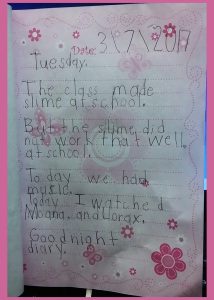 Date: 3/7/2017
Tuesday.
The class made
slime at school.
But the slime did
not work that well.
at school.
To day we had
music.
Today I watched
Moana. and lorax.
Good night
diary.